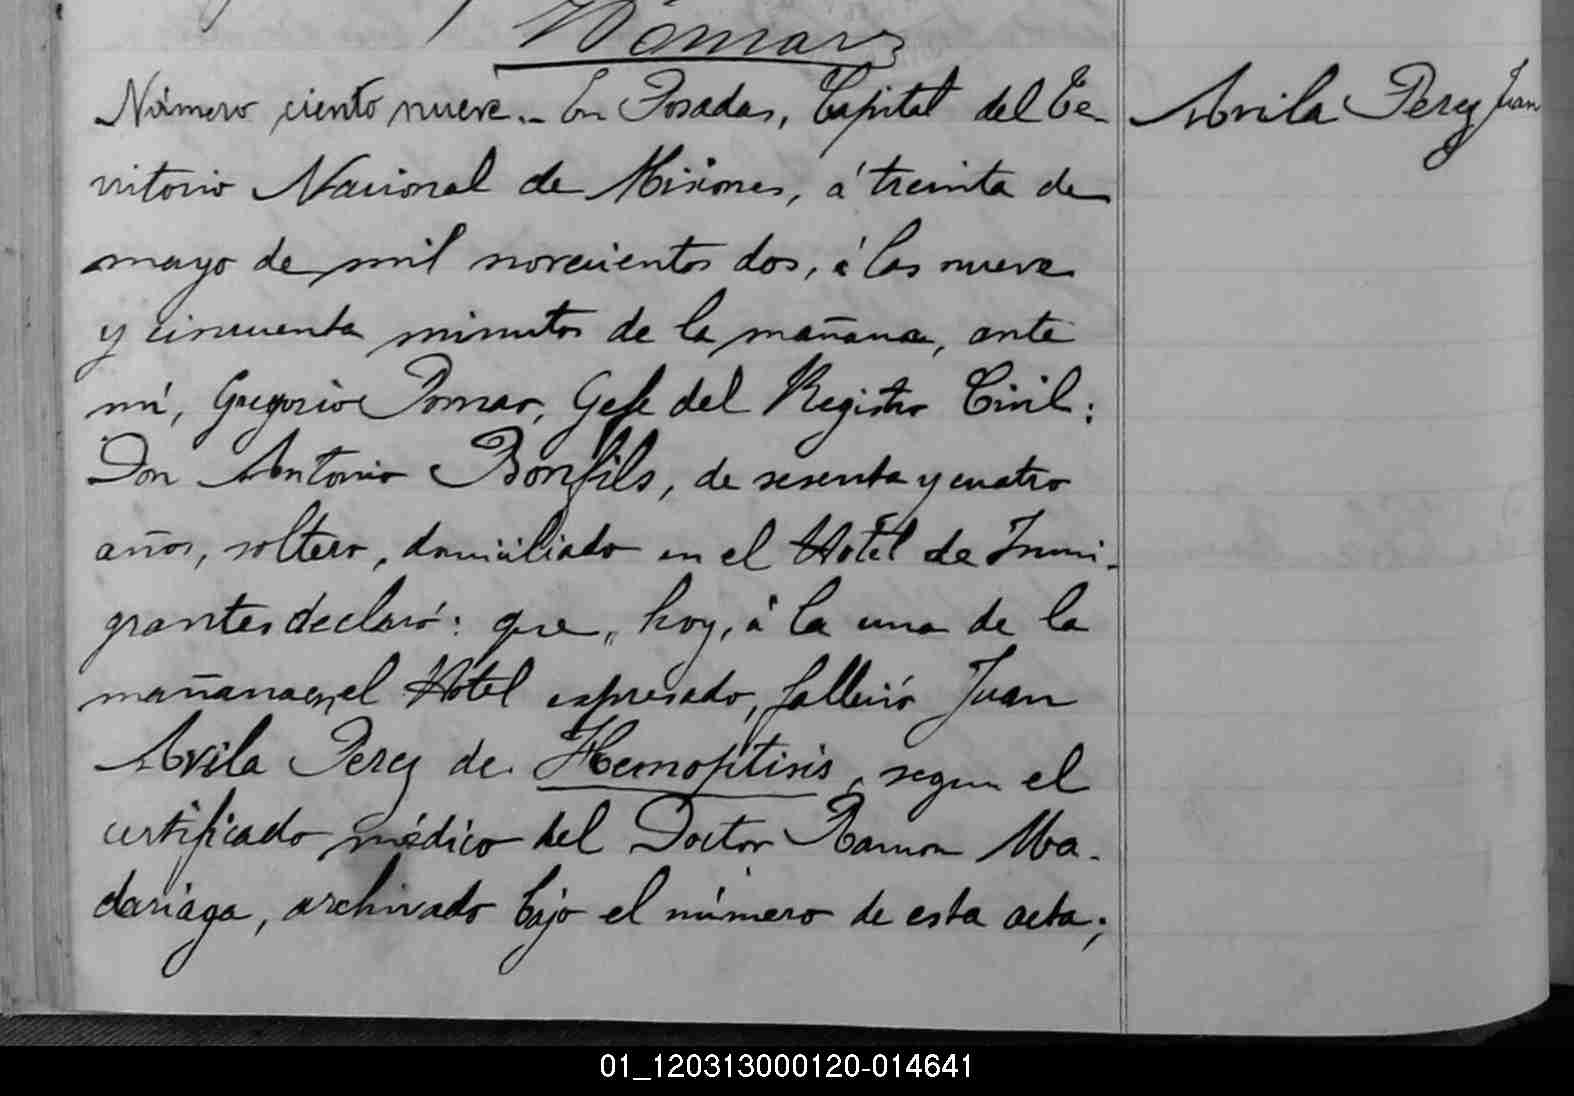 Pomar
Número ciento nueve.- En Posadas, Capital del Te-
rritorio Nacional de Misiones, á treinta de
mayo de mil novecientos dos, á las nueve
y cincuenta minutos de la mañana, ante
mí, Gregorio Pomar, Gefe del Registro Civil:
Don Antonio Bonfils, de sesenta y cuatro
años, soltero, domiciliado en el Hotel de Inmi-
grantes declaró: que, hoy, á la una de la
mañana en el Hotel expresado, falleció Juan
Avila Perez de Hemoptisis, segun el
certificado médico del Doctor Ramon Ma-
dariaga, archivado bajo el número de esta acta;
Avila Perez Juan
01_120313000120-014641